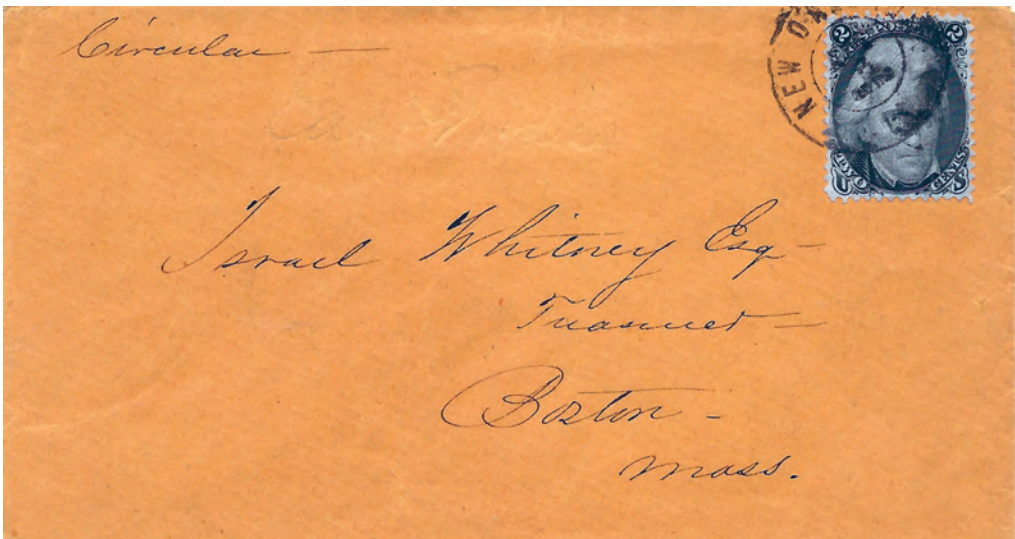 Circular —
NEW O
2 U.S. POST 2
TWO CENTS
U S
Israel Whitney Esq —
Treasurer —
Boston —
Mass.